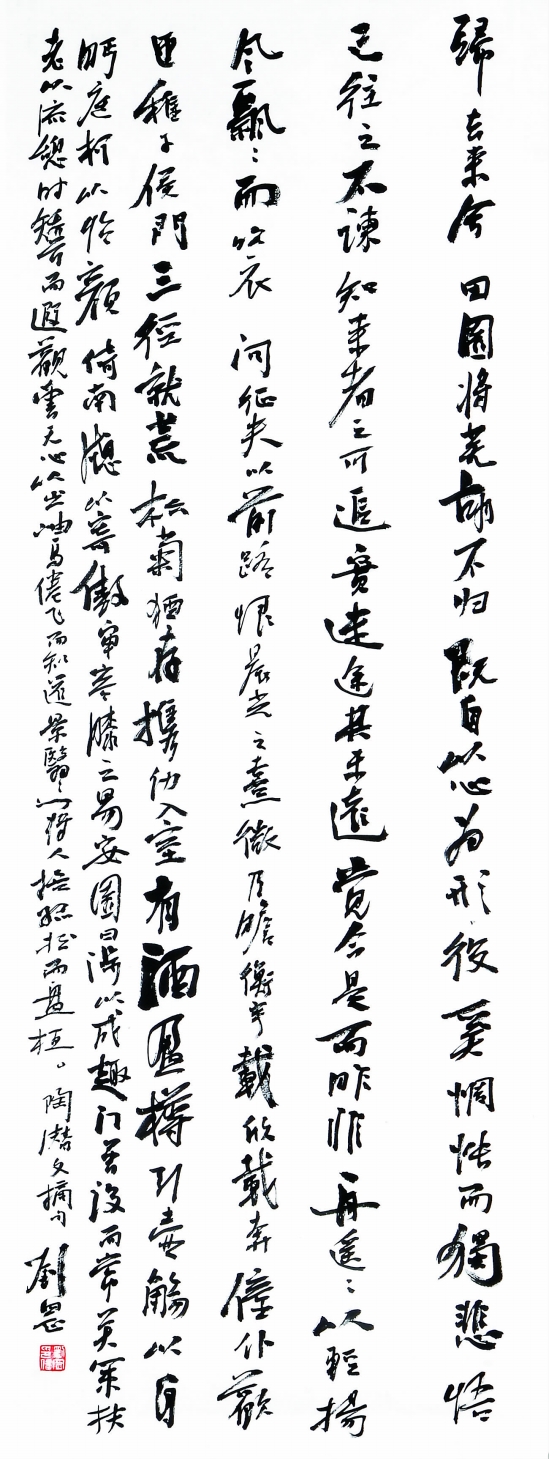 歸去来兮田園將荒胡不归既自以心为形役奚惆悵而獨悲悟
已往之不諫知来者之可追實迷途其未遠觉今是而昨非舟遥〻以輕揚
风飄〻而吹衣问征夫以前路恨晨光之熹微乃瞻衡宇載欣載奔僮仆歡
迎稚子侯門三徑就荒松菊猶存携幼入室有酒盈樽引壶觴以自
眄庭柯以怡顏倚南窗以寄傲審容膝之易安園日涉以成趣门虽設而常关策扶
老以流憩时矯首而遐觀雲无心以出岫鸟倦飞而知還景翳〻以将入撫孤松而盘桓。陶潜文摘句 劉